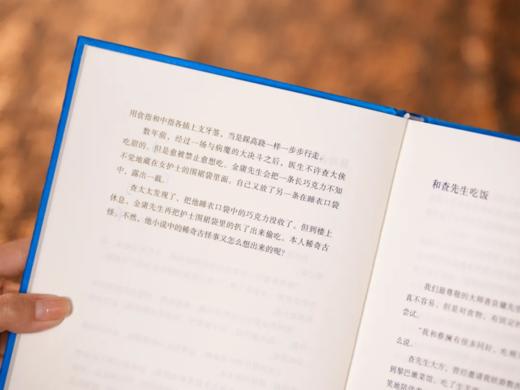 用食指和中指各插上支牙签，当是踩高跷一样一步步行走。
数年前，经过一场与病魔的大决斗之后，医生不许查大侠
吃甜的，但是愈被禁止愈想吃。金庸先生会把一条长巧克力不知
不觉地藏在女护士的围裙袋里面，自己又放了另一条在睡衣口袋
中，露出一截。
查太太发现了，把他睡衣口袋中的巧克力没收了，但到楼上
休息，金庸先生再把护士围裙袋里的扒了出来偷吃。本人稀奇古
怪，不然，他小说中的稀奇古怪事又怎么想出来的呢？
和查先生吃饭
我们最尊敬的大师查良镛先生
真不容易，但是对食物，有固定的
尝试。
“我和蔡澜有很多同好，吃
么说。
查先生大方，曾经邀请我
到黎巴嫩菜馆，吃了